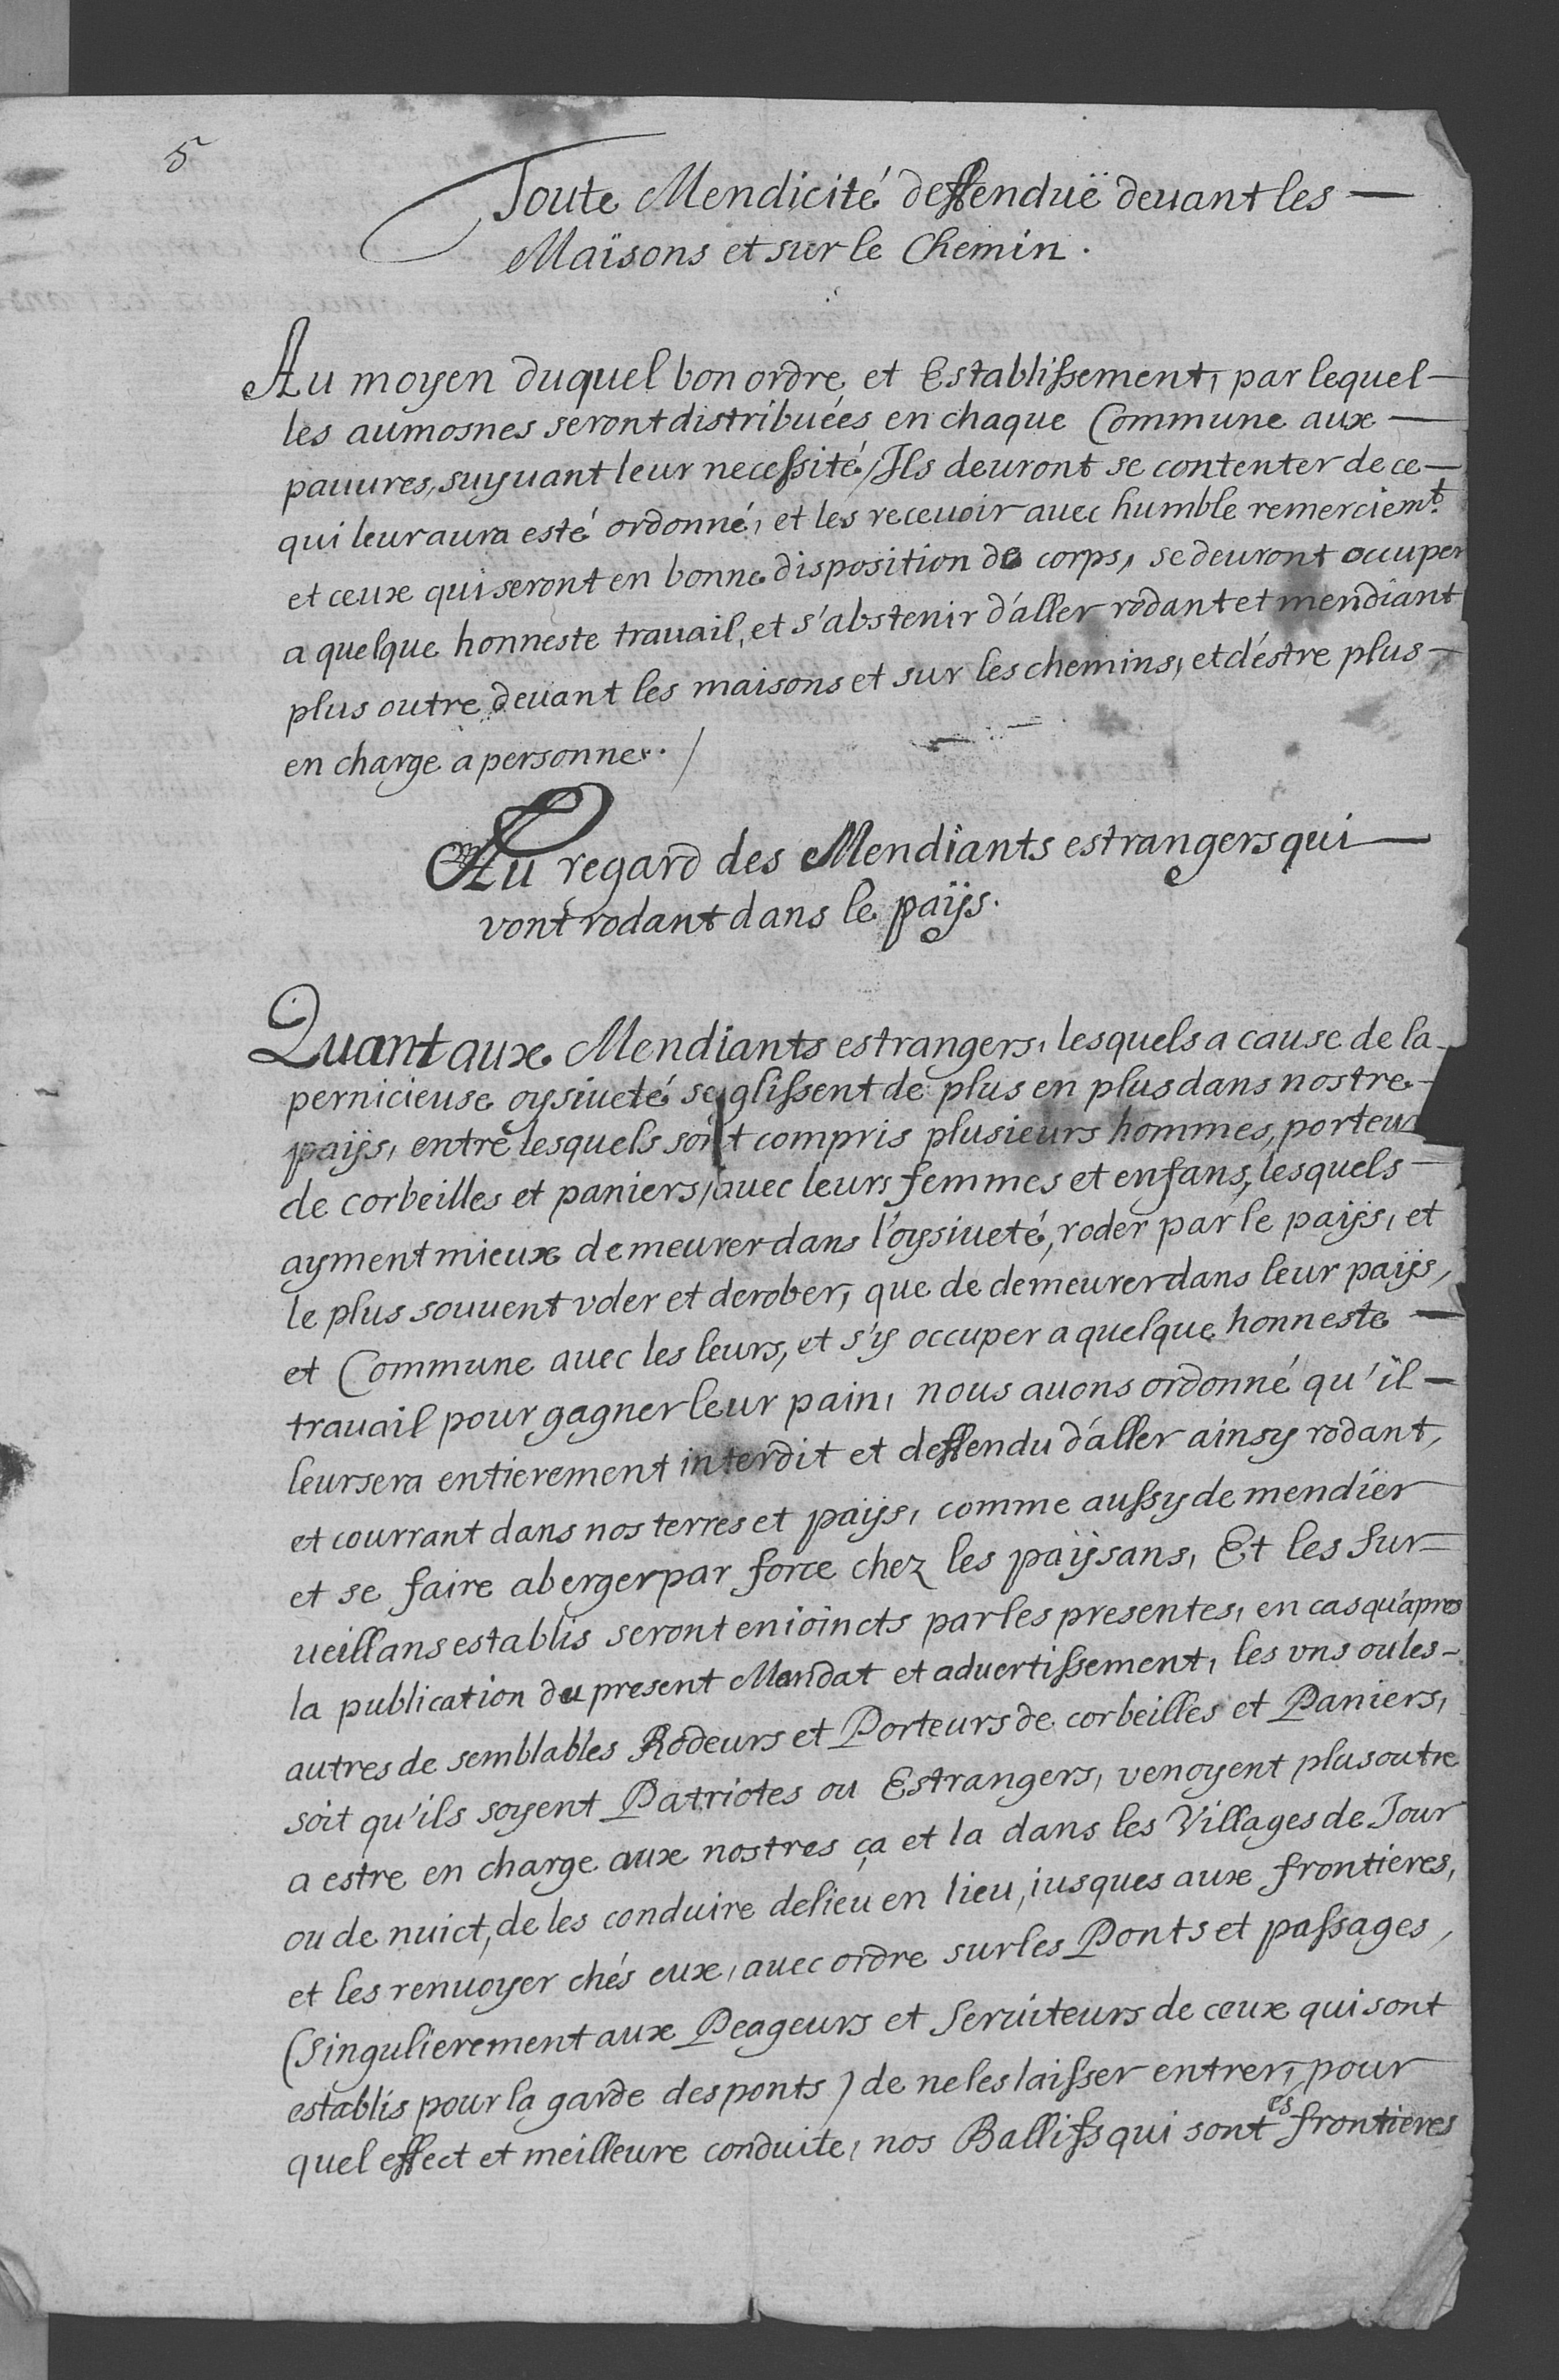 5
Toute Mendicité deffenduë deuant les —
Maisons et sur le Chemin.
Au moyen duquel bon ordre, et Establissement, par lequel —
les aumosnes seront distribuées en chaque Commune aux —
pauures, suyuant leur necessité / Ils deuront se contenter de ce —
qui leur aura esté ordonné, et les receuoir auec humble remerciemt.
et ceux qui seront en bonne disposition de corps, se deuront occuper
a quelque honneste trauail, et s'abstenir d'aller rodant et mendiant
plus outre deuant les maisons et sur les chemins, et d'estre plus —
en charge a personne. /
Au regard des Mendiants estrangers qui —
vont rodant dans le païjs.
Quant aux Mendiants estrangers, lesquels a cause de la —
pernicieuse oysiueté se glissent de plus en plus dans nostre —
païjs, entre lesquels sont compris plusieurs hommes, porteu
de corbeilles et paniers, auec leurs femmes et enfans, lesquels —
ayment mieux demeurer dans l'oysiueté, roder par le païjs, et
le plus souuent voler et derober, que de demeurer dans leur païjs,
et Commune auec les leurs, et s'y occuper a quelque honneste —
trauail pour gagner leur pain, nous auons ordonné qu'il —
leur sera entierement interdit et deffendu d'aller ainsy rodant,
et courrant dans nos terres et païjs, comme aussy de mendier
et se faire aberger par force chez les païjsans, Et les Sur-
ueillans establis seront enioincts par les presentes, en cas qu'apres
la publication du present Mandat et aduertissement, les vns ou les —
autres de semblables Rodeurs et Porteurs de corbeilles et Paniers,
soit qu'ils soyent Patriotes ou Estrangers, venoyent plus outre
a estre en charge aux nostres ça et la dans les Villages de Jour
ou de nuict, de les conduire de lieu en lieu, iusques aux frontieres,
et les renuoyer chés eux, auec ordre sur les Ponts et passages,
(singulierement aux Peageurs et Seruiteurs de ceux qui sont
establis pour la garde des ponts) de ne les laisser entrer, pour
quel effect et meilleure conduite, nos Ballifs qui sont es frontieres